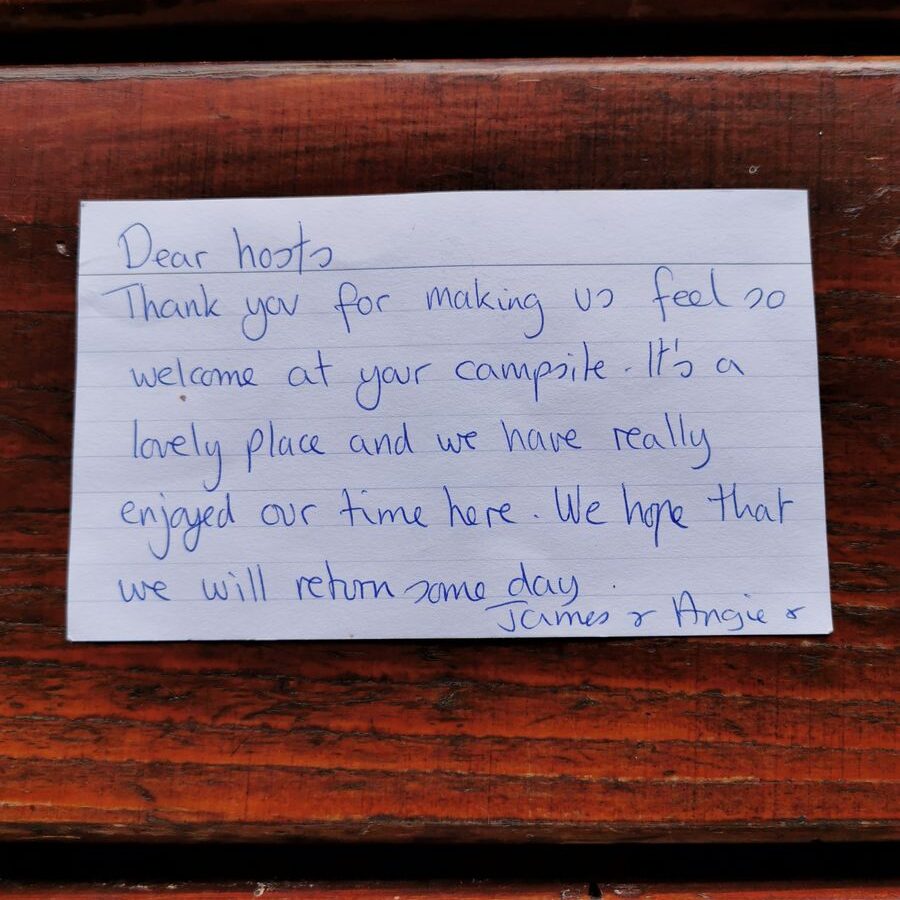 Dear hosts
Thank you for making us feel so
welcome at your campsite. It's a
lovely place and we have really
enjoyed our time here. We hope that
we will return some day.
James & Angie x